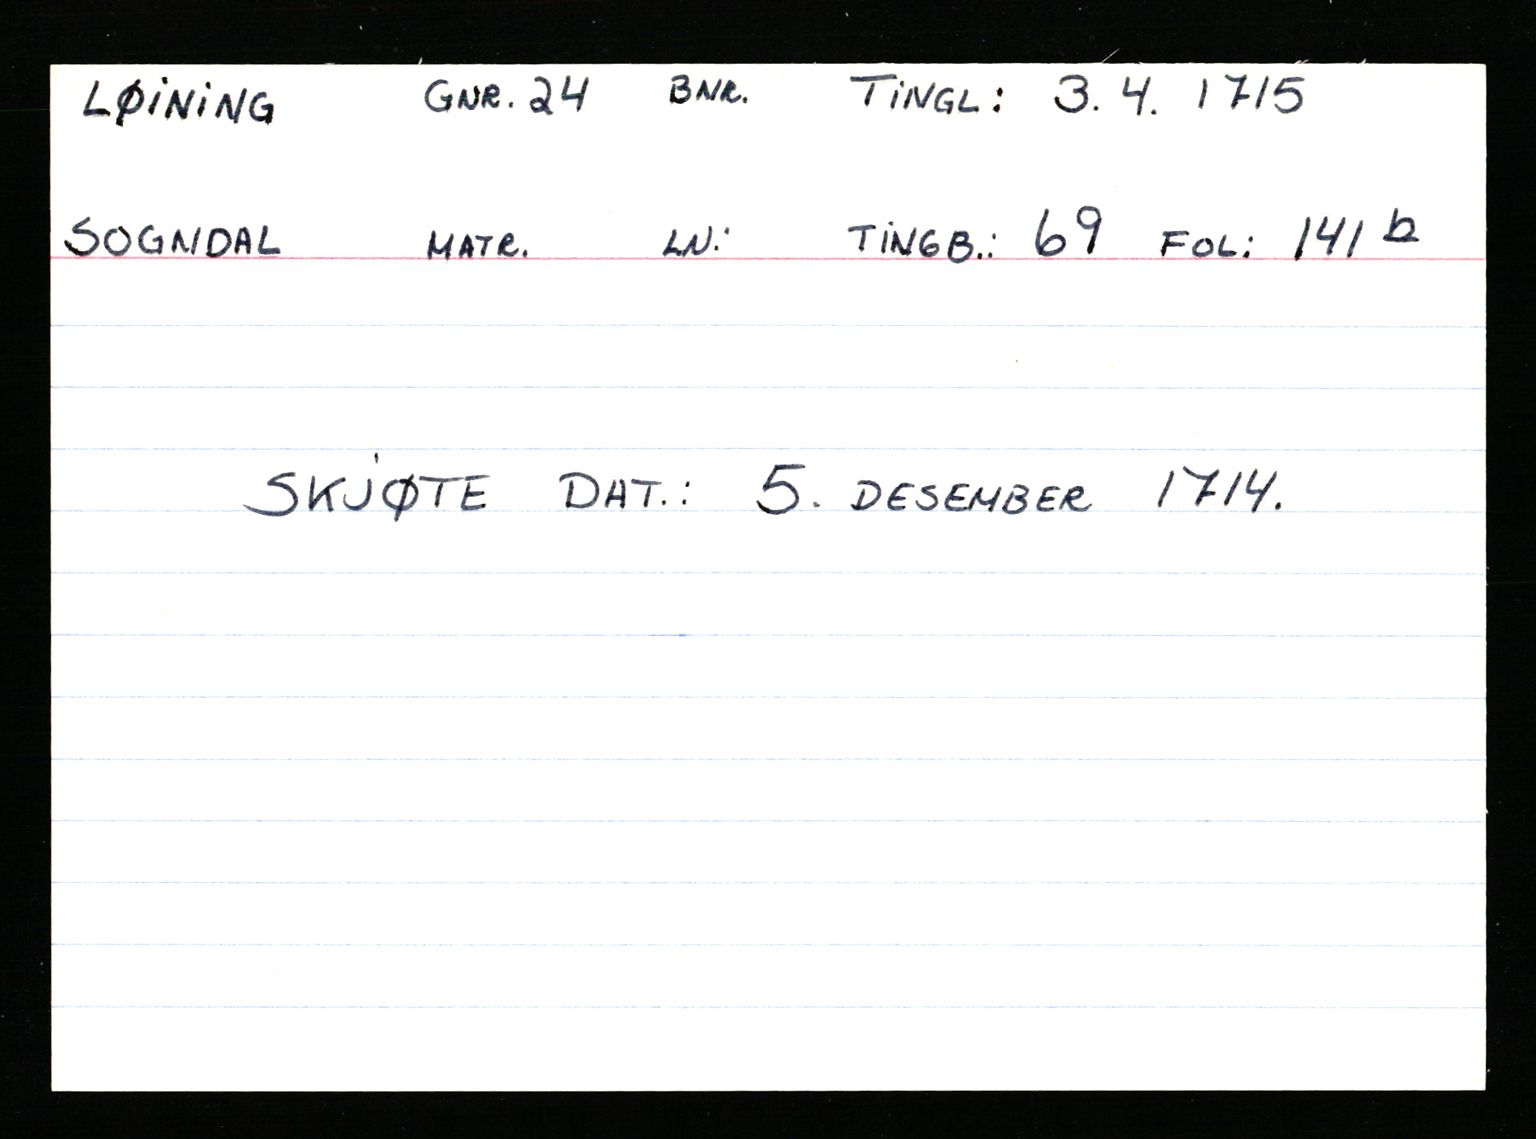 LØINING GNR. 24 BNR. TINGL: 3. 4. 1715
SOGNDAL MATR. LN: TINGB.: 69 FOL: 141 b
SKJØTE DAT.: 5. DESEMBER 1714.